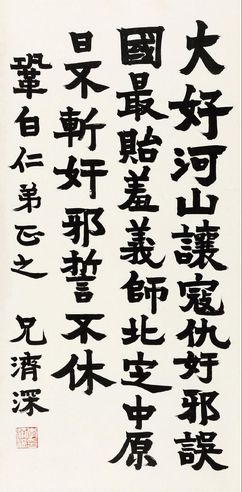 大好河山讓寇仇奸邪誤
國最貽羞義師北定中原
日不斬奸邪誓不休
鞏白仁弟正之 兄濟深